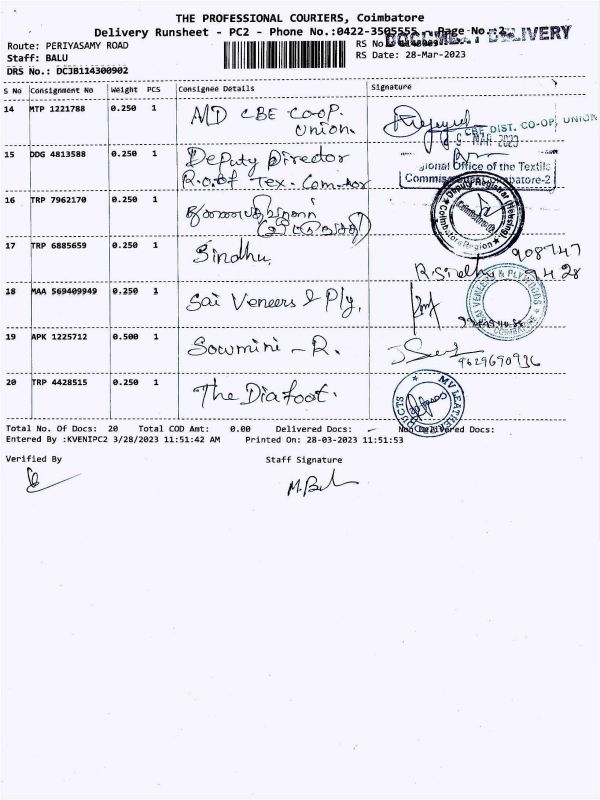 THE PROFESSIONAL COURIERS, Coimbatore
Delivery Runsheet - PC2 - Phone No.:0422-3505555 Page No.:2
DOCUMENT DELIVERY
Route: PERIYASAMY ROAD RS No.
Staff: BALU RS Date: 28-Mar-2023
DRS No.: DCJB114300902
S No Consignment No Weight PCS Consignee Details Signature
14 MTP 1221788 0.250 1 MD CBE COOP.
Union.
CBE DIST. CO-OP, UNION
MAR 2023
15 DDG 4813588 0.250 1 Deputy Director
R.O.of Tex. Com-tor
gional Office of the Textile
Commiss Coimbatore-2
16 TRP 7962170 0.250 1
Deputy Registrar (Housing)
Coimbatore Region
17 TRP 6885659 0.250 1 Sindhu,
908747
9428
18 MAA 569409949 0.250 1 Sai Veneers & Ply,
SAI VENEER & PLYWOODS
COIMBATORE
19 APK 1225712 0.500 1 Sowmini - R.
9629690936
20 TRP 4428515 0.250 1 The Diafoot.
MV LEATHER
DUCTS
Total No. Of Docs: 20 Total COD Amt: 0.00 Delivered Docs: - Non Delivered Docs:
Entered By :KVENIPC2 3/28/2023 11:51:42 AM Printed On: 28-03-2023 11:51:53
Verified By Staff Signature